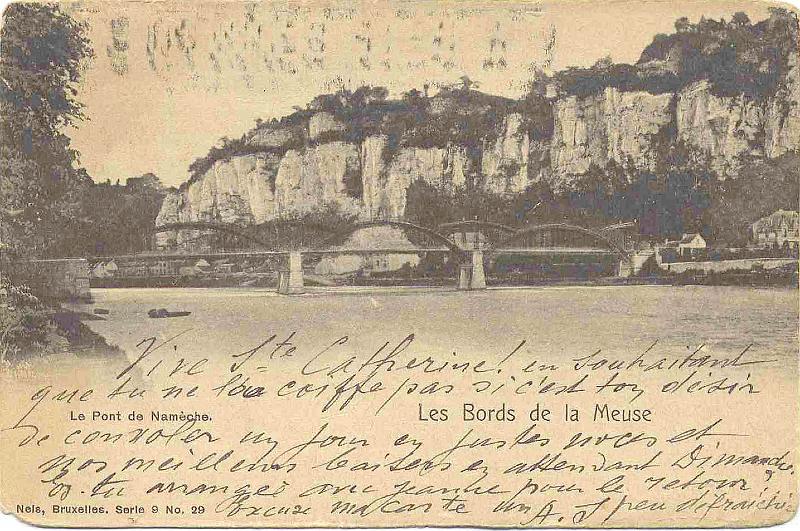 Vive Ste Catherine! en souhaitant
que tu ne la coiffe pas si c'est ton désir
Le Pont de Namèche.
Les Bords de la Meuse
de convoler un jour en justes noces et
nos meilleurs baisers en attendant Dimanche.
tu arranges avec jeanne pour le retour?
Nels, Bruxelles. Serie 9 No. 29
Excuse ma carte un peu défraichie
A. J